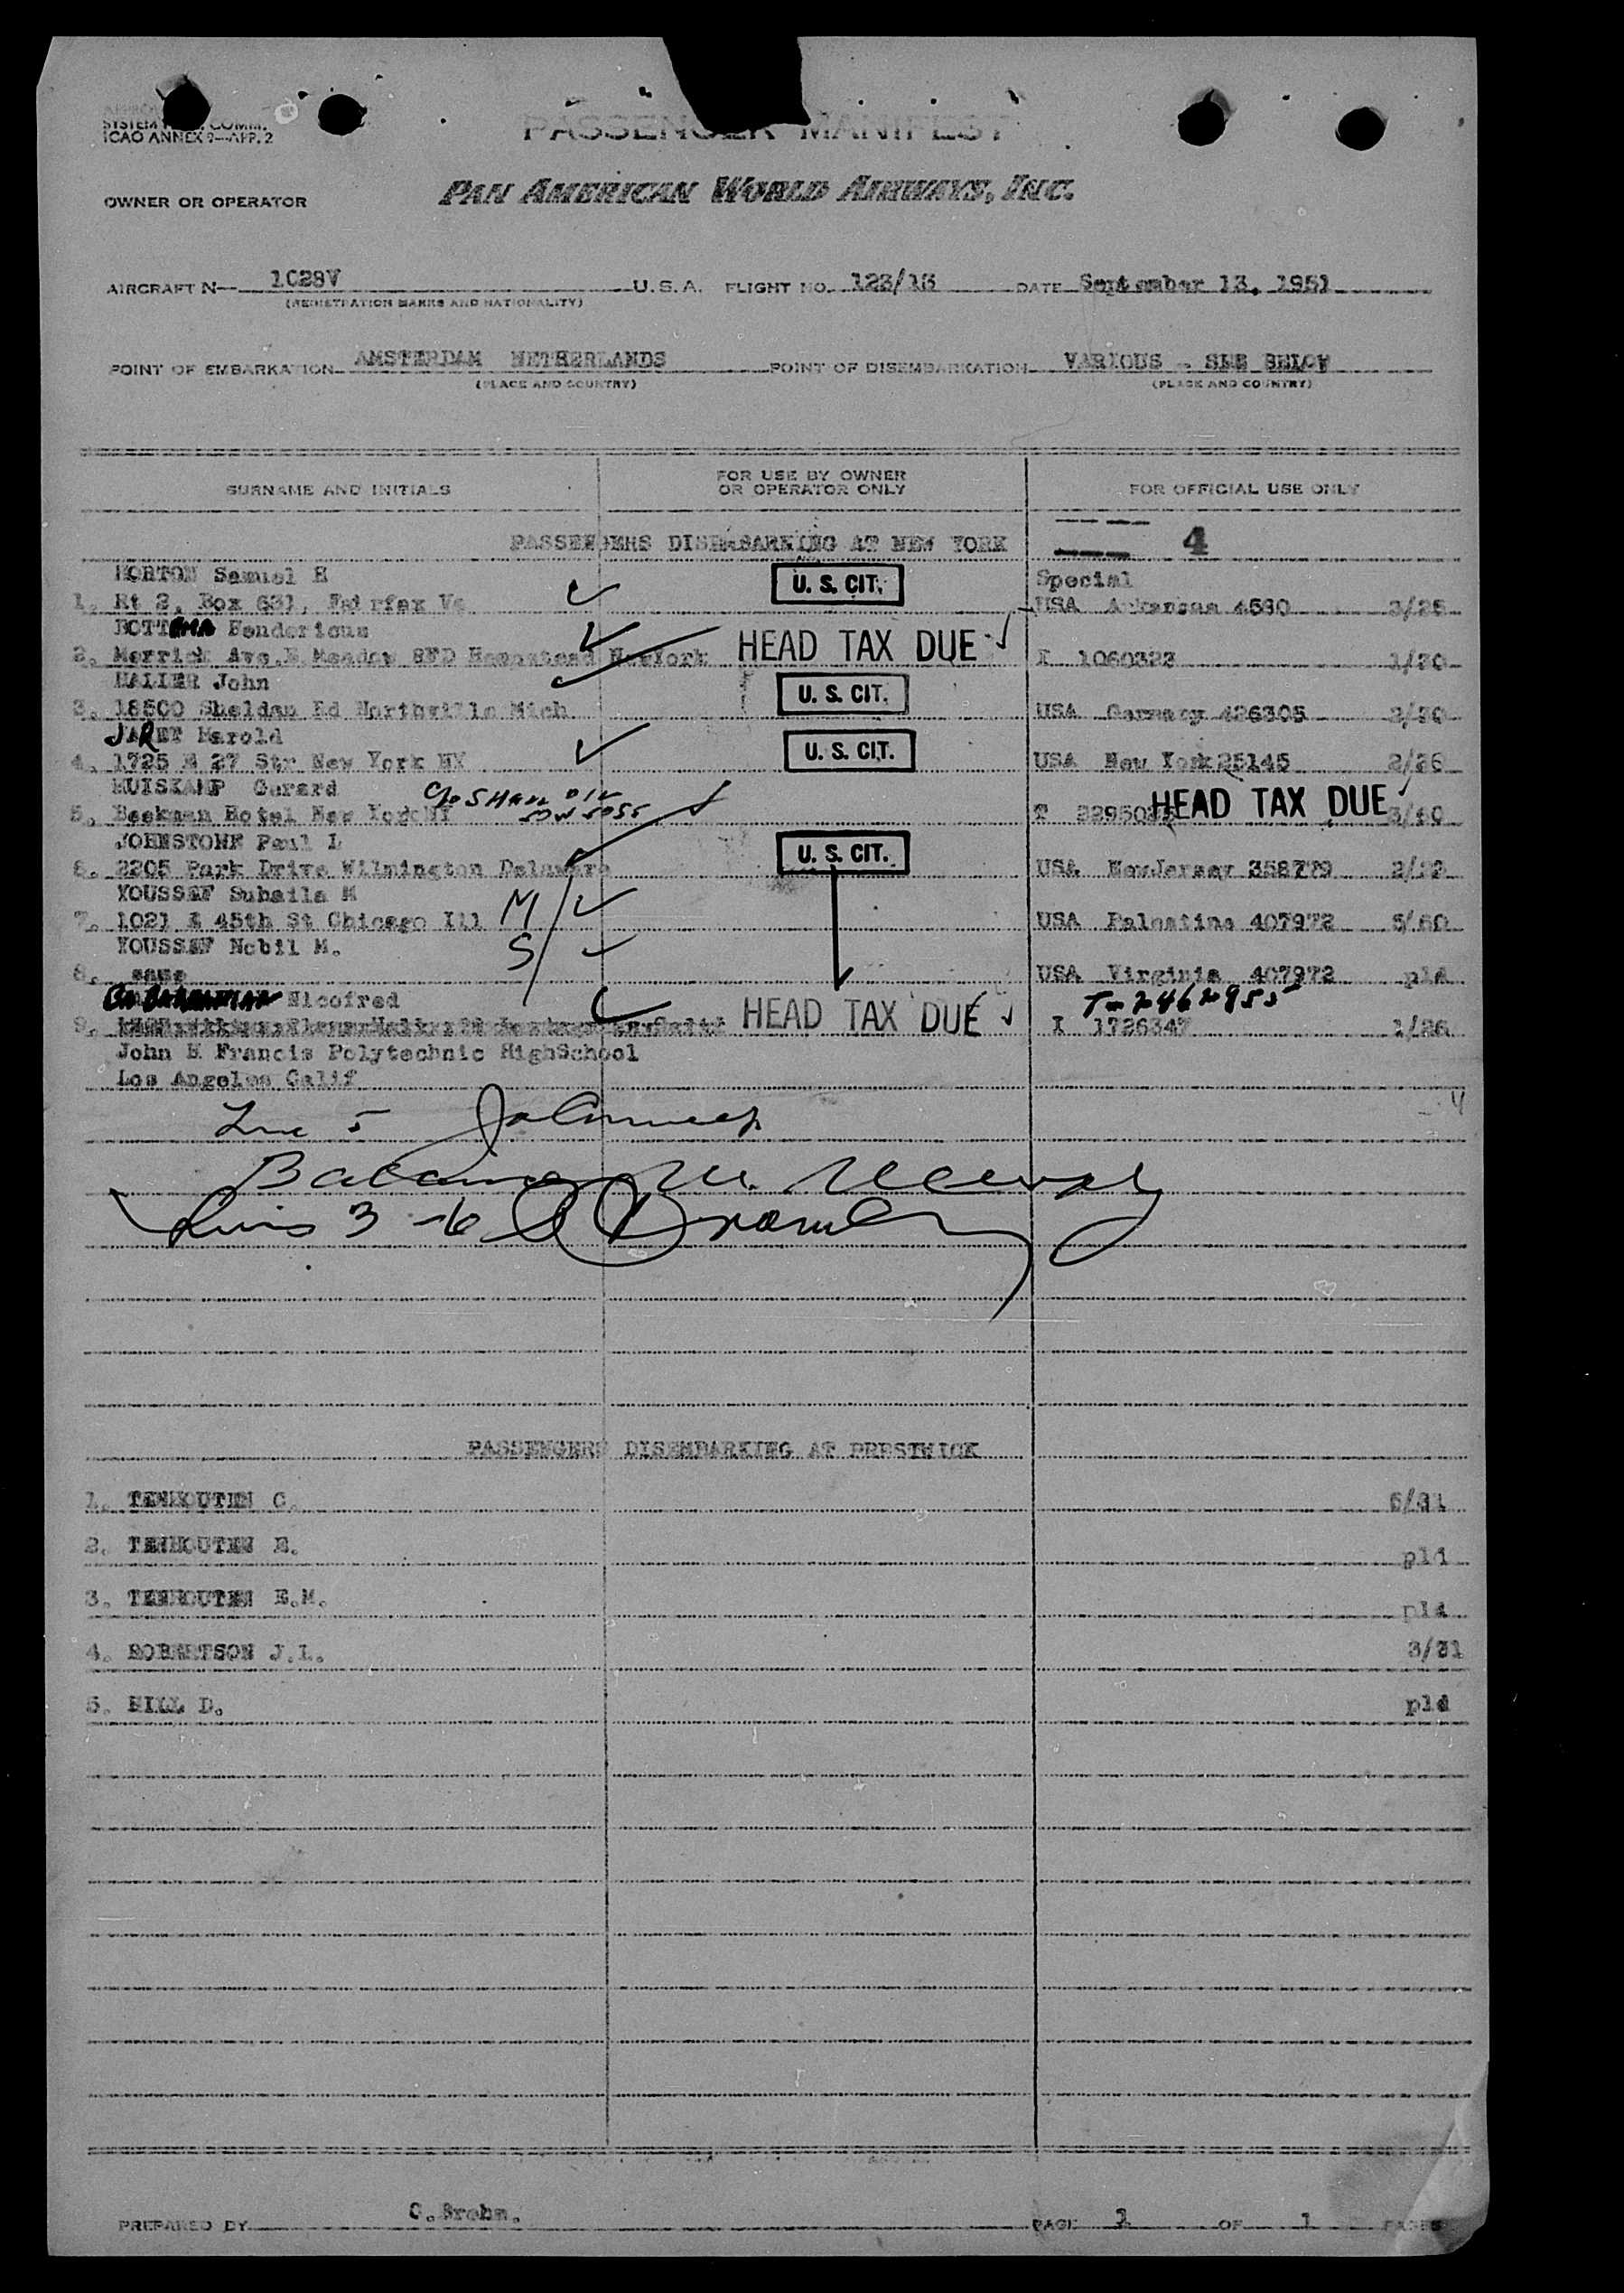 SYSTEM COMM.
ICAO ANNEX 9—APP. 2
PASSENGER MANIFEST
OWNER OR OPERATOR PAN AMERICAN WORLD AIRWAYS, INC.
AIRCRAFT N— 1028V U. S. A. FLIGHT NO. 123/13 DATE September 13, 1951
(REGISTRATION MARKS AND NATIONALITY)
POINT OF EMBARKATION AMSTERDAM NETHERLANDS POINT OF DISEMBARKATION VARIOUS - SEE BELOW
(PLACE AND COUNTRY) (PLACE AND COUNTRY)
SURNAME AND INITIALS FOR USE BY OWNER OR OPERATOR ONLY FOR OFFICIAL USE ONLY
PASSENGERS DISEMBARKING AT NEW YORK 4
Samuel U. S. CIT. Special
1. Rt 2, Box 631, Fairfax Va USA Arkansas 4580 3/26
BOTTEMA Hendericus HEAD TAX DUE
2. Merrick Ave. E Meadow RFD Hempstead NewYork I 1060323 1/30
John U. S. CIT.
3. 18500 Sheldan Rd Northville Mich USA Germany 426305 2/30
JARET Harold U. S. CIT.
4. 1725 27 Str New York NY USA New York 25145 2/26
MUISKAMP Gerard c/o
5. Beekman Hotel New York NY HEAD TAX DUE 3/40
JOHNSTONE Paul L U. S. CIT.
6. 2205 Park Drive Wilmington Delaware USA NewJersey 358779 2/22
YOUSSEF Suhaila M M
7. 1021 45th St Chicago Ill USA Palestine 407972 5/60
YOUSSEF Nobil M. S
8. same USA Virginia 407972 pld
HEAD TAX DUE T-2462955
9. I 1726347 1/26
John H Francis Polytechnic HighSchool
Los Angeles Calif
PASSENGERS DISEMBARKING AT PRESTWICK
1. TENHOUTEN C. 5/31
2. TENHOUTEN E. pld
3. TENHOUTEN E.M. pld
4. ROBERTSON J.L. 3/31
5. HILL D. pld
PREPARED BY PAGE 1 OF 1 PAGES